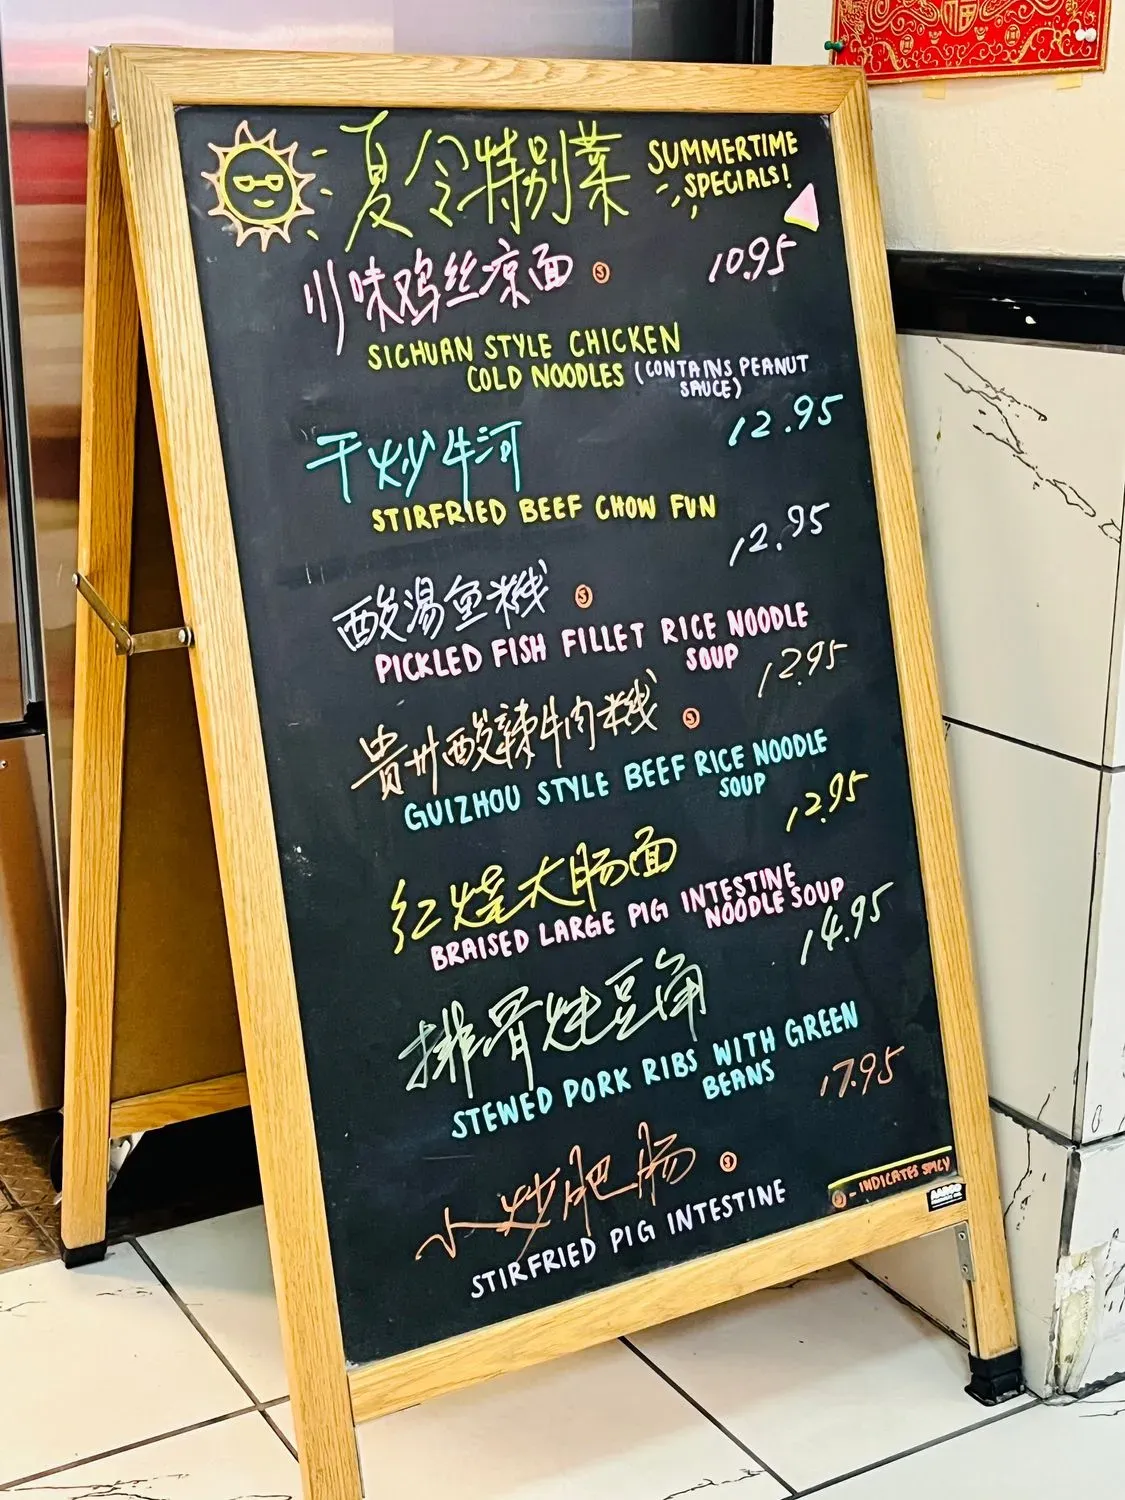 夏令特别菜 SUMMERTIME
SPECIALS!
川味鸡丝凉面 Ⓢ 10.95
SICHUAN STYLE CHICKEN
COLD NOODLES (CONTAINS PEANUT
SAUCE)
12.95
干炒牛河
STIRFRIED BEEF CHOW FUN
12.95
酸湯鱼米线 Ⓢ
PICKLED FISH FILLET RICE NOODLE
SOUP
12.95
貴州酸辣牛肉米线 Ⓢ
GUIZHOU STYLE BEEF RICE NOODLE
SOUP
12.95
红烧大肠面
BRAISED LARGE PIG INTESTINE
NOODLE SOUP
14.95
排骨炖豆角
STEWED PORK RIBS WITH GREEN
BEANS
17.95
小炒肥肠 Ⓢ
STIRFRIED PIG INTESTINE
Ⓢ - INDICATES SPICY
AARCO
福